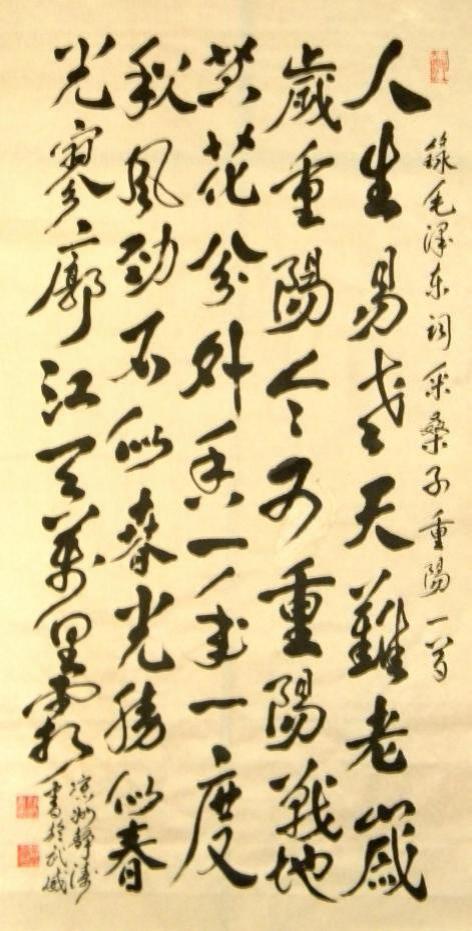 錄毛泽东词采桑子重陽一首
人生易老天難老歲
歲重陽今又重陽戰地
黄花分外香一年一度
秋風勁不似春光勝似春
光寥廓江天萬里霜
凉州静涛
書於武威